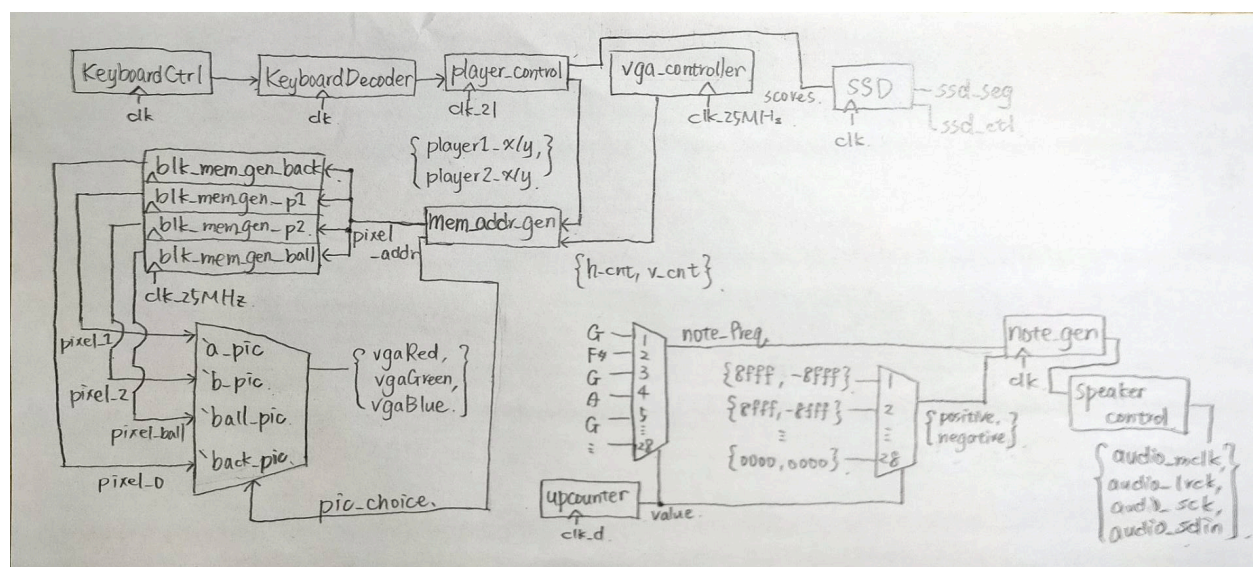 KeyboardCtrl
clk
KeyboardDecoder
clk
player_control
clk_21
vga_controller
clk_25MHz
scores.
SSD
clk.
ssd_seg
ssd_ctl
{player1_x/y,
player2_x/y.}
blk_mem_gen_back
blk_mem_gen_p1
blk_mem_gen_p2.
blk_mem_gen_ball
clk_25MHz.
pixel
_addr
mem_addr_gen
{h_cnt, v_cnt}
pixel_1
pixel_2
pixel_ball
pixel_0
`a_pic
`b_pic.
`ball_pic.
`back_pic.
{vgaRed,
vgaGreen,
vgaBlue.}
pic_choice.
G
F4
G
A
G
⋮
1
2
3
4
5
⋮
28
note_freq
{8fff, -8fff}
{8fff, -8fff}
⋮
{0000, 0000}
1
2
⋮
28
{positive,
negative}
upcounter
clk_d.
value.
note_gen
clk
speaker
control
{audio_mclk,
audio_lrck,
audio_sck,
audio_sdin}